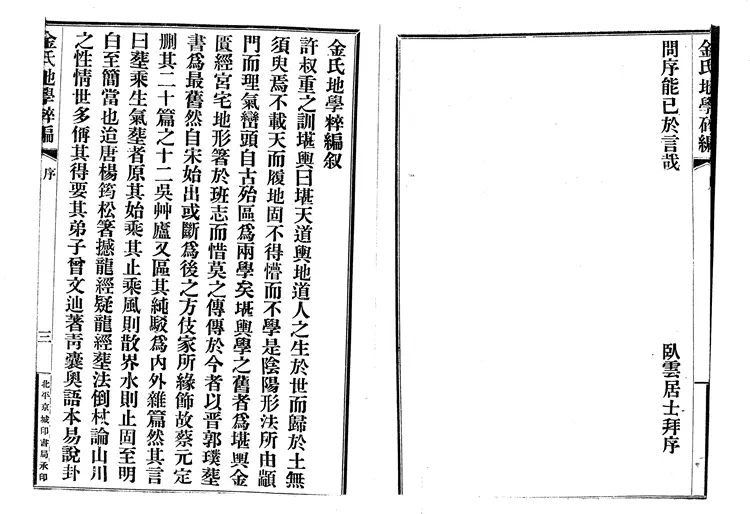 金氏地學粹編
問序能已於言哉
臥雲居士拜序
金氏地學粹編叙
許叔重之訓堪輿曰堪天道輿地道人之生於世而歸於土無
須臾焉不載天而履地固不得懵而不學是陰陽形法所由顓
門而理氣巒頭自古殆區爲兩學矣堪輿學之舊者爲堪輿金
匱經宮宅地形箸於班志而惜莫之傳傳於今者以晋郭璞塟
書爲最舊然自宋始出或斷爲後之方伎家所緣飾故蔡元定
删其二十篇之十二吳艸廬又區其純駁爲内外雜篇然其言
曰塟乘生氣塟者原其始乘其止乘風則散界水則止固至明
白至簡當也迨唐楊筠松箸撼龍經疑龍經塟法倒杖論山川
之性情世多偁其得要其弟子曾文辿著靑囊奥語本易說卦
金氏地學粹編
序
三
北平京城印書局承印